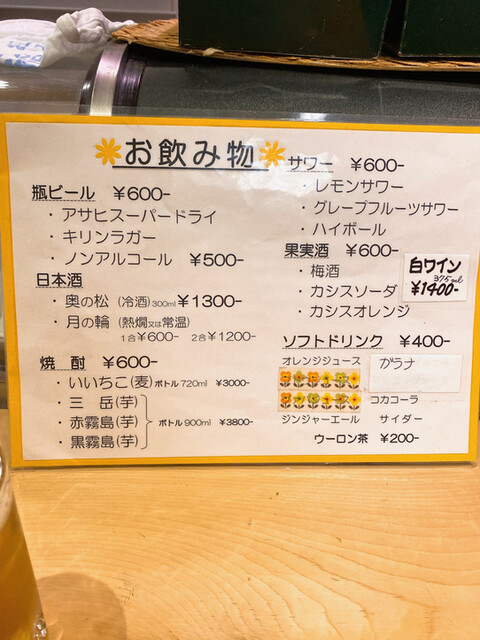 お飲み物
瓶ビール ¥600-
・アサヒスーパードライ
・キリンラガー
・ノンアルコール ¥500-
日本酒
・奥の松 (冷酒)300ml ¥1300-
・月の輪 (熱燗又は常温)
1合¥600- 2合¥1200-
焼酎 ¥600-
・いいちこ(麦) ボトル720ml ¥3000-
・三岳(芋)
・赤霧島(芋) ボトル900ml ¥3800-
・黒霧島(芋)
サワー ¥600-
・レモンサワー
・グレープフルーツサワー
・ハイボール
果実酒 ¥600-
・梅酒
・カシスソーダ
・カシスオレンジ
白ワイン
375ml
¥1400-
ソフトドリンク ¥400-
オレンジジュース ガラナ
コカコーラ
ジンジャーエール サイダー
ウーロン茶 ¥200-